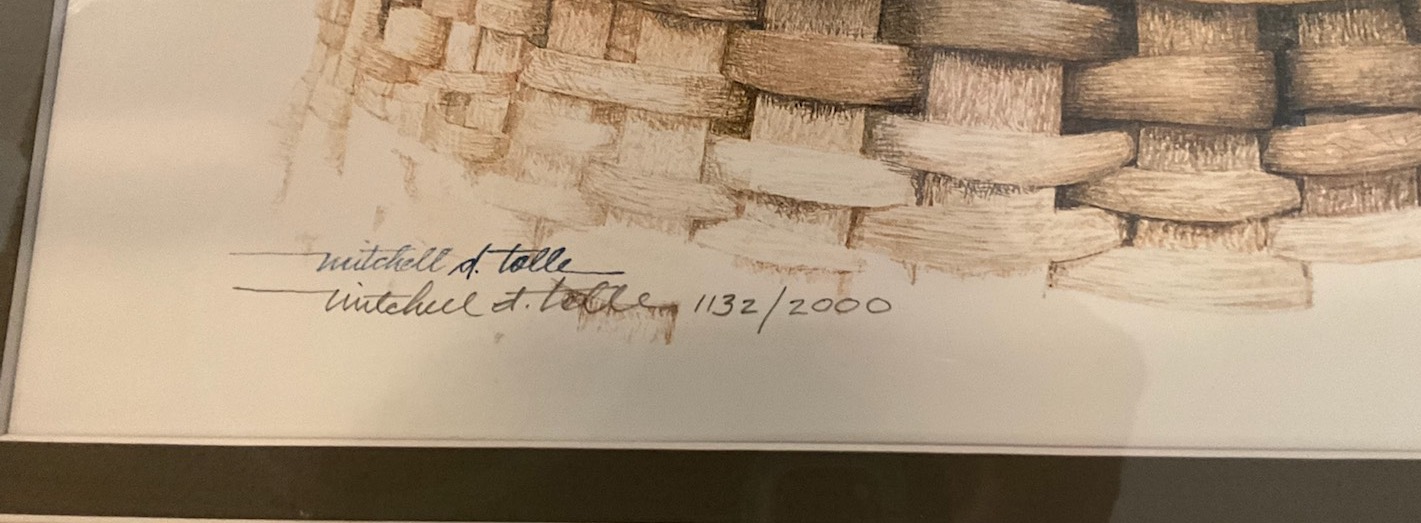 mitchell d. tolle
mitchell d. tolle 1132/2000